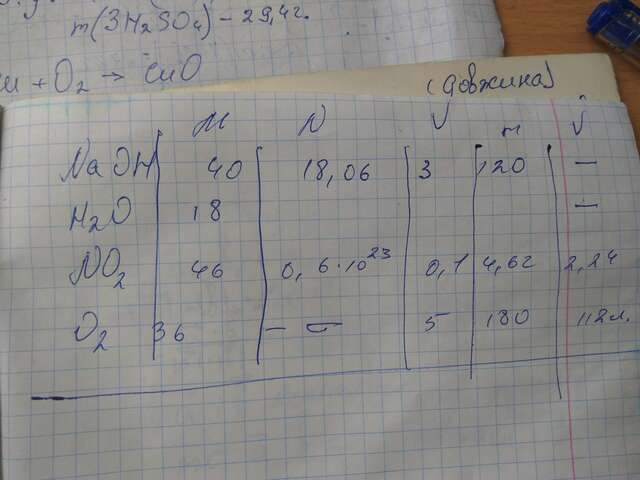 m(3H₂SO₄) - 29,4г.
+ O₂ → CuO
(довжина)
M N V m V
NaOH 40 18,06 3 120 —
H₂O 18 —
NO₂ 46 0,6·10²³ 0,1 4,6г 2,24
O₂ 36 — 5 180 112л.